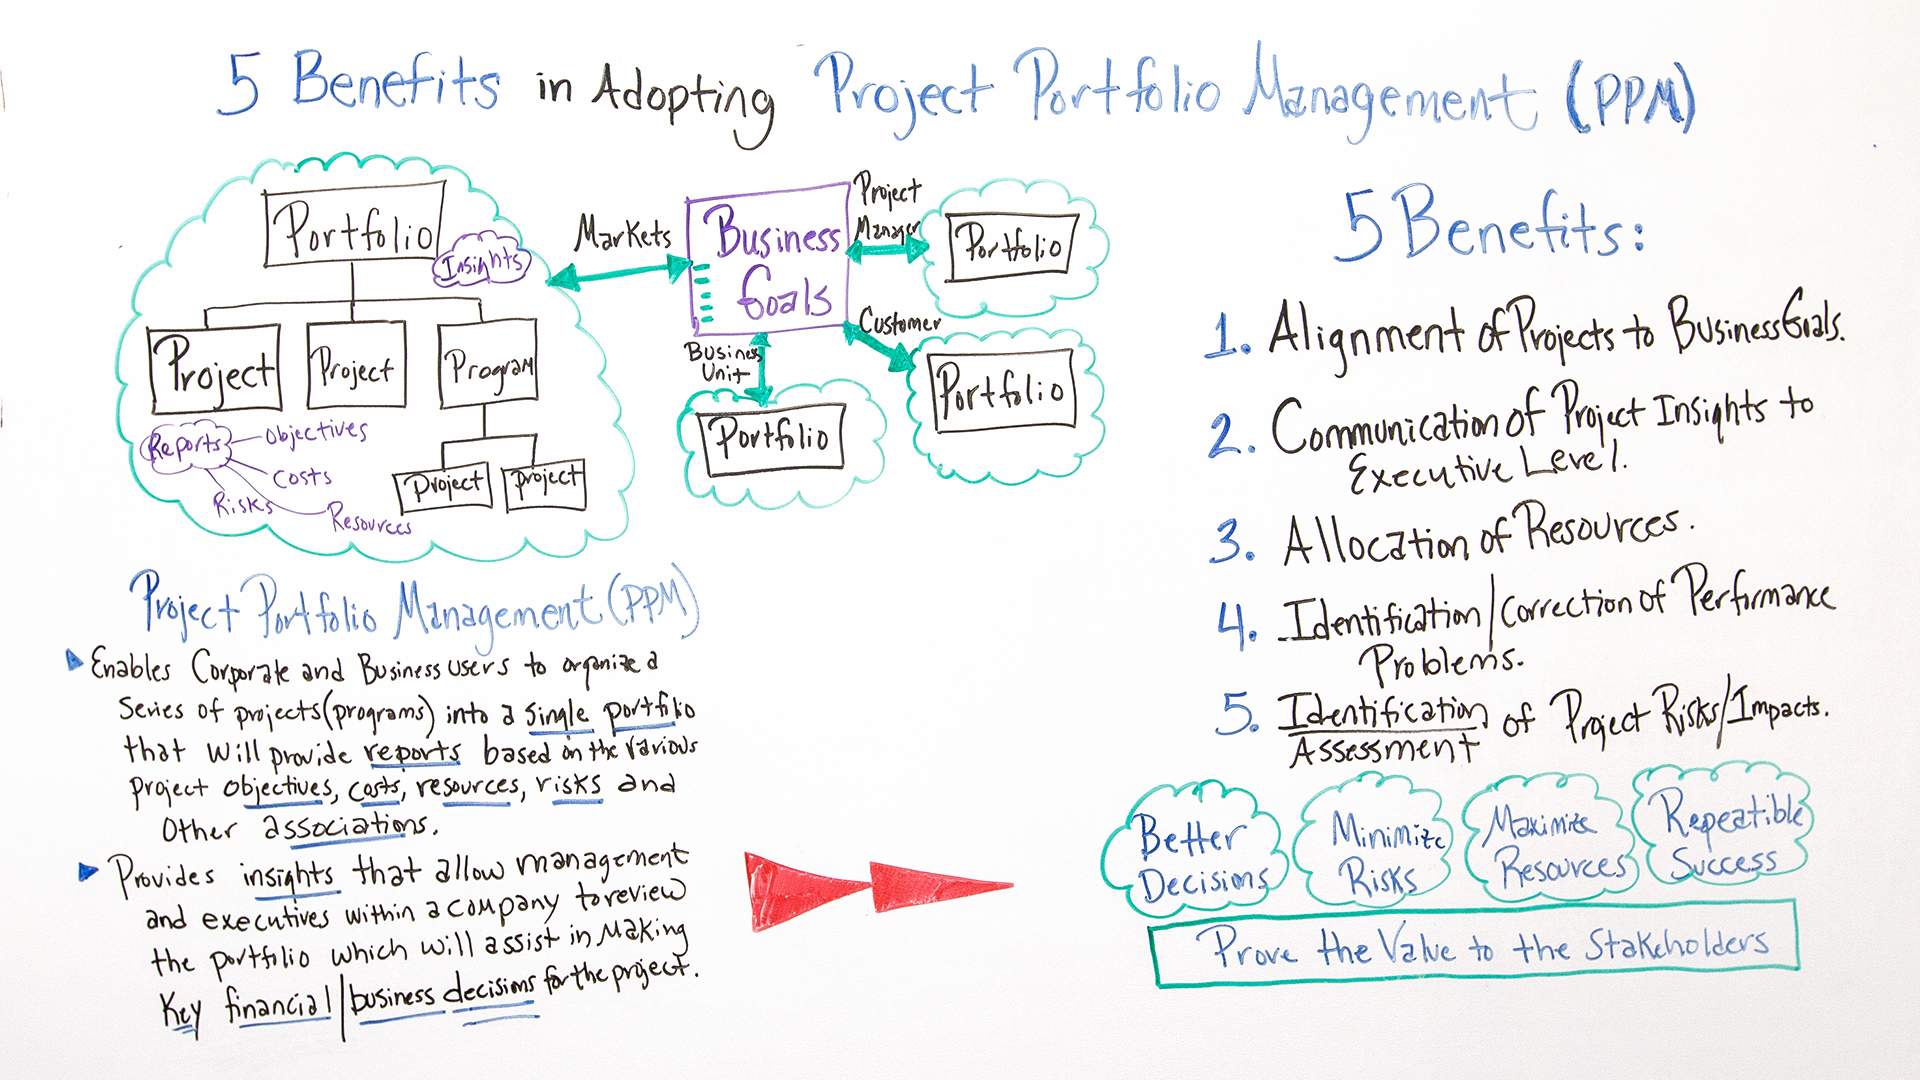 5 Benefits in Adopting Project Portfolio Management (PPM)
Portfolio
Insights
Project
Project
Program
Reports
Objectives
Costs
Risks
Resources
Project
Project
Markets
Business
Goals
Project
Manager
Portfolio
Customer
Portfolio
Business
Unit
Portfolio
Project Portfolio Management (PPM)
Enables Corporate and Business users to organize a
series of projects (programs) into a single portfolio
that will provide reports based on the various
project objectives, costs, resources, risks and
other associations.
Provides insights that allow management
and executives within a company to review
the portfolio which will assist in making
Key financial/business decisions for the project.
5 Benefits:
1. Alignment of Projects to Business Goals.
2. Communication of Project Insights to
Executive Level.
3. Allocation of Resources.
4. Identification/Correction of Performance
Problems.
5. Identification of Project Risks/Impacts.
Assessment
Better
Decisions
Minimize
Risks
Maximize
Resources
Repeatible
Success
Prove the Value to the Stakeholders